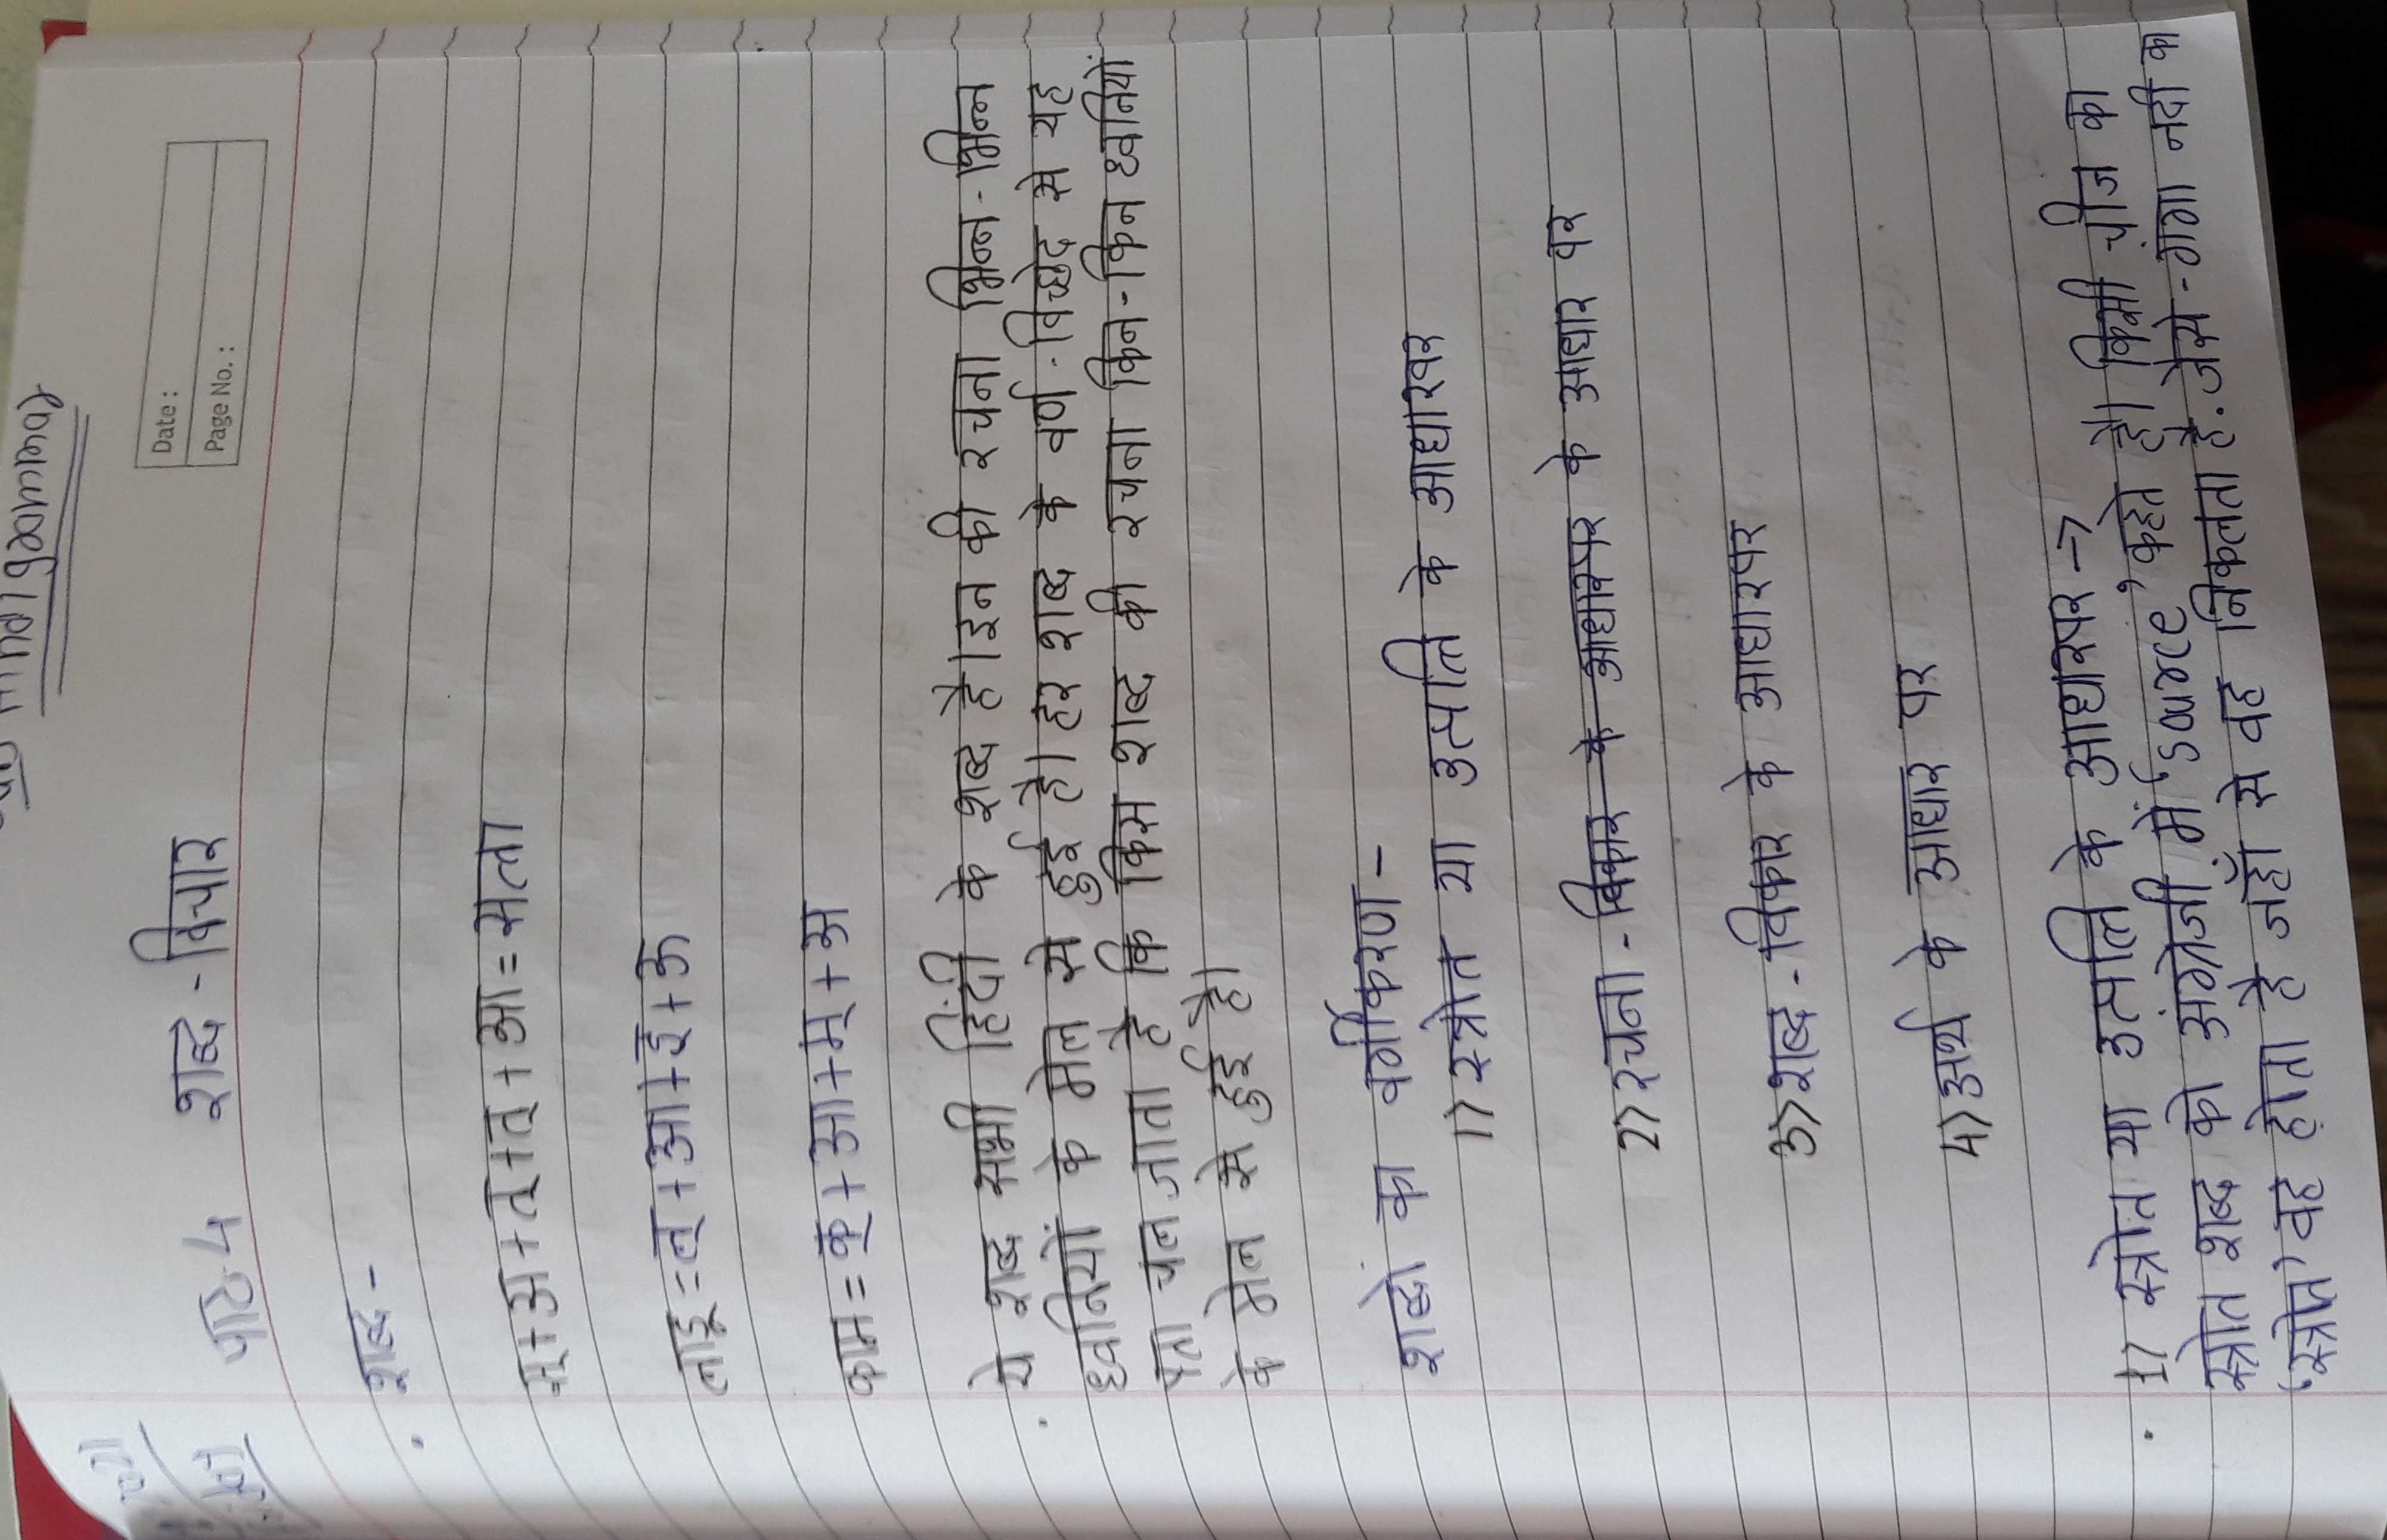 hindi grammar
Date :
Page No. :
पाठ-4 शब्द - विचार
शब्द -
स्+अ+त्+त्+आ=सत्ता
लाडू=ल्+आ+ड्+ऊ
काम=क्+आ+म्+अ
ये शब्द सभी हिंदी के शब्द है। इन की रचना भिन्न-भिन्न
ध्वनियों के मेल से हुई है। हर शब्द के वर्ण-विच्छेद से यह
पता चल जाता है कि किस शब्द की रचना किन-किन ध्वनियों
के मेल से हुई है।
शब्दों का वर्गिकरण -
1) स्त्रोत या उत्पत्ति के आधारपर
2) रचना - विकार के आधारपर के आधार पर
3) शब्द - विकार के आधारपर
4) अर्थ के आधार पर
1) स्त्रोत या उत्पत्ति के आधारपर ->
स्त्रोत शब्द को अंग्रेजी में 'source' कहते है। किसी चीज का
'स्त्रोत' वह होता है जहाँ से वह निकलता है. जैसे - गंगा नदी का